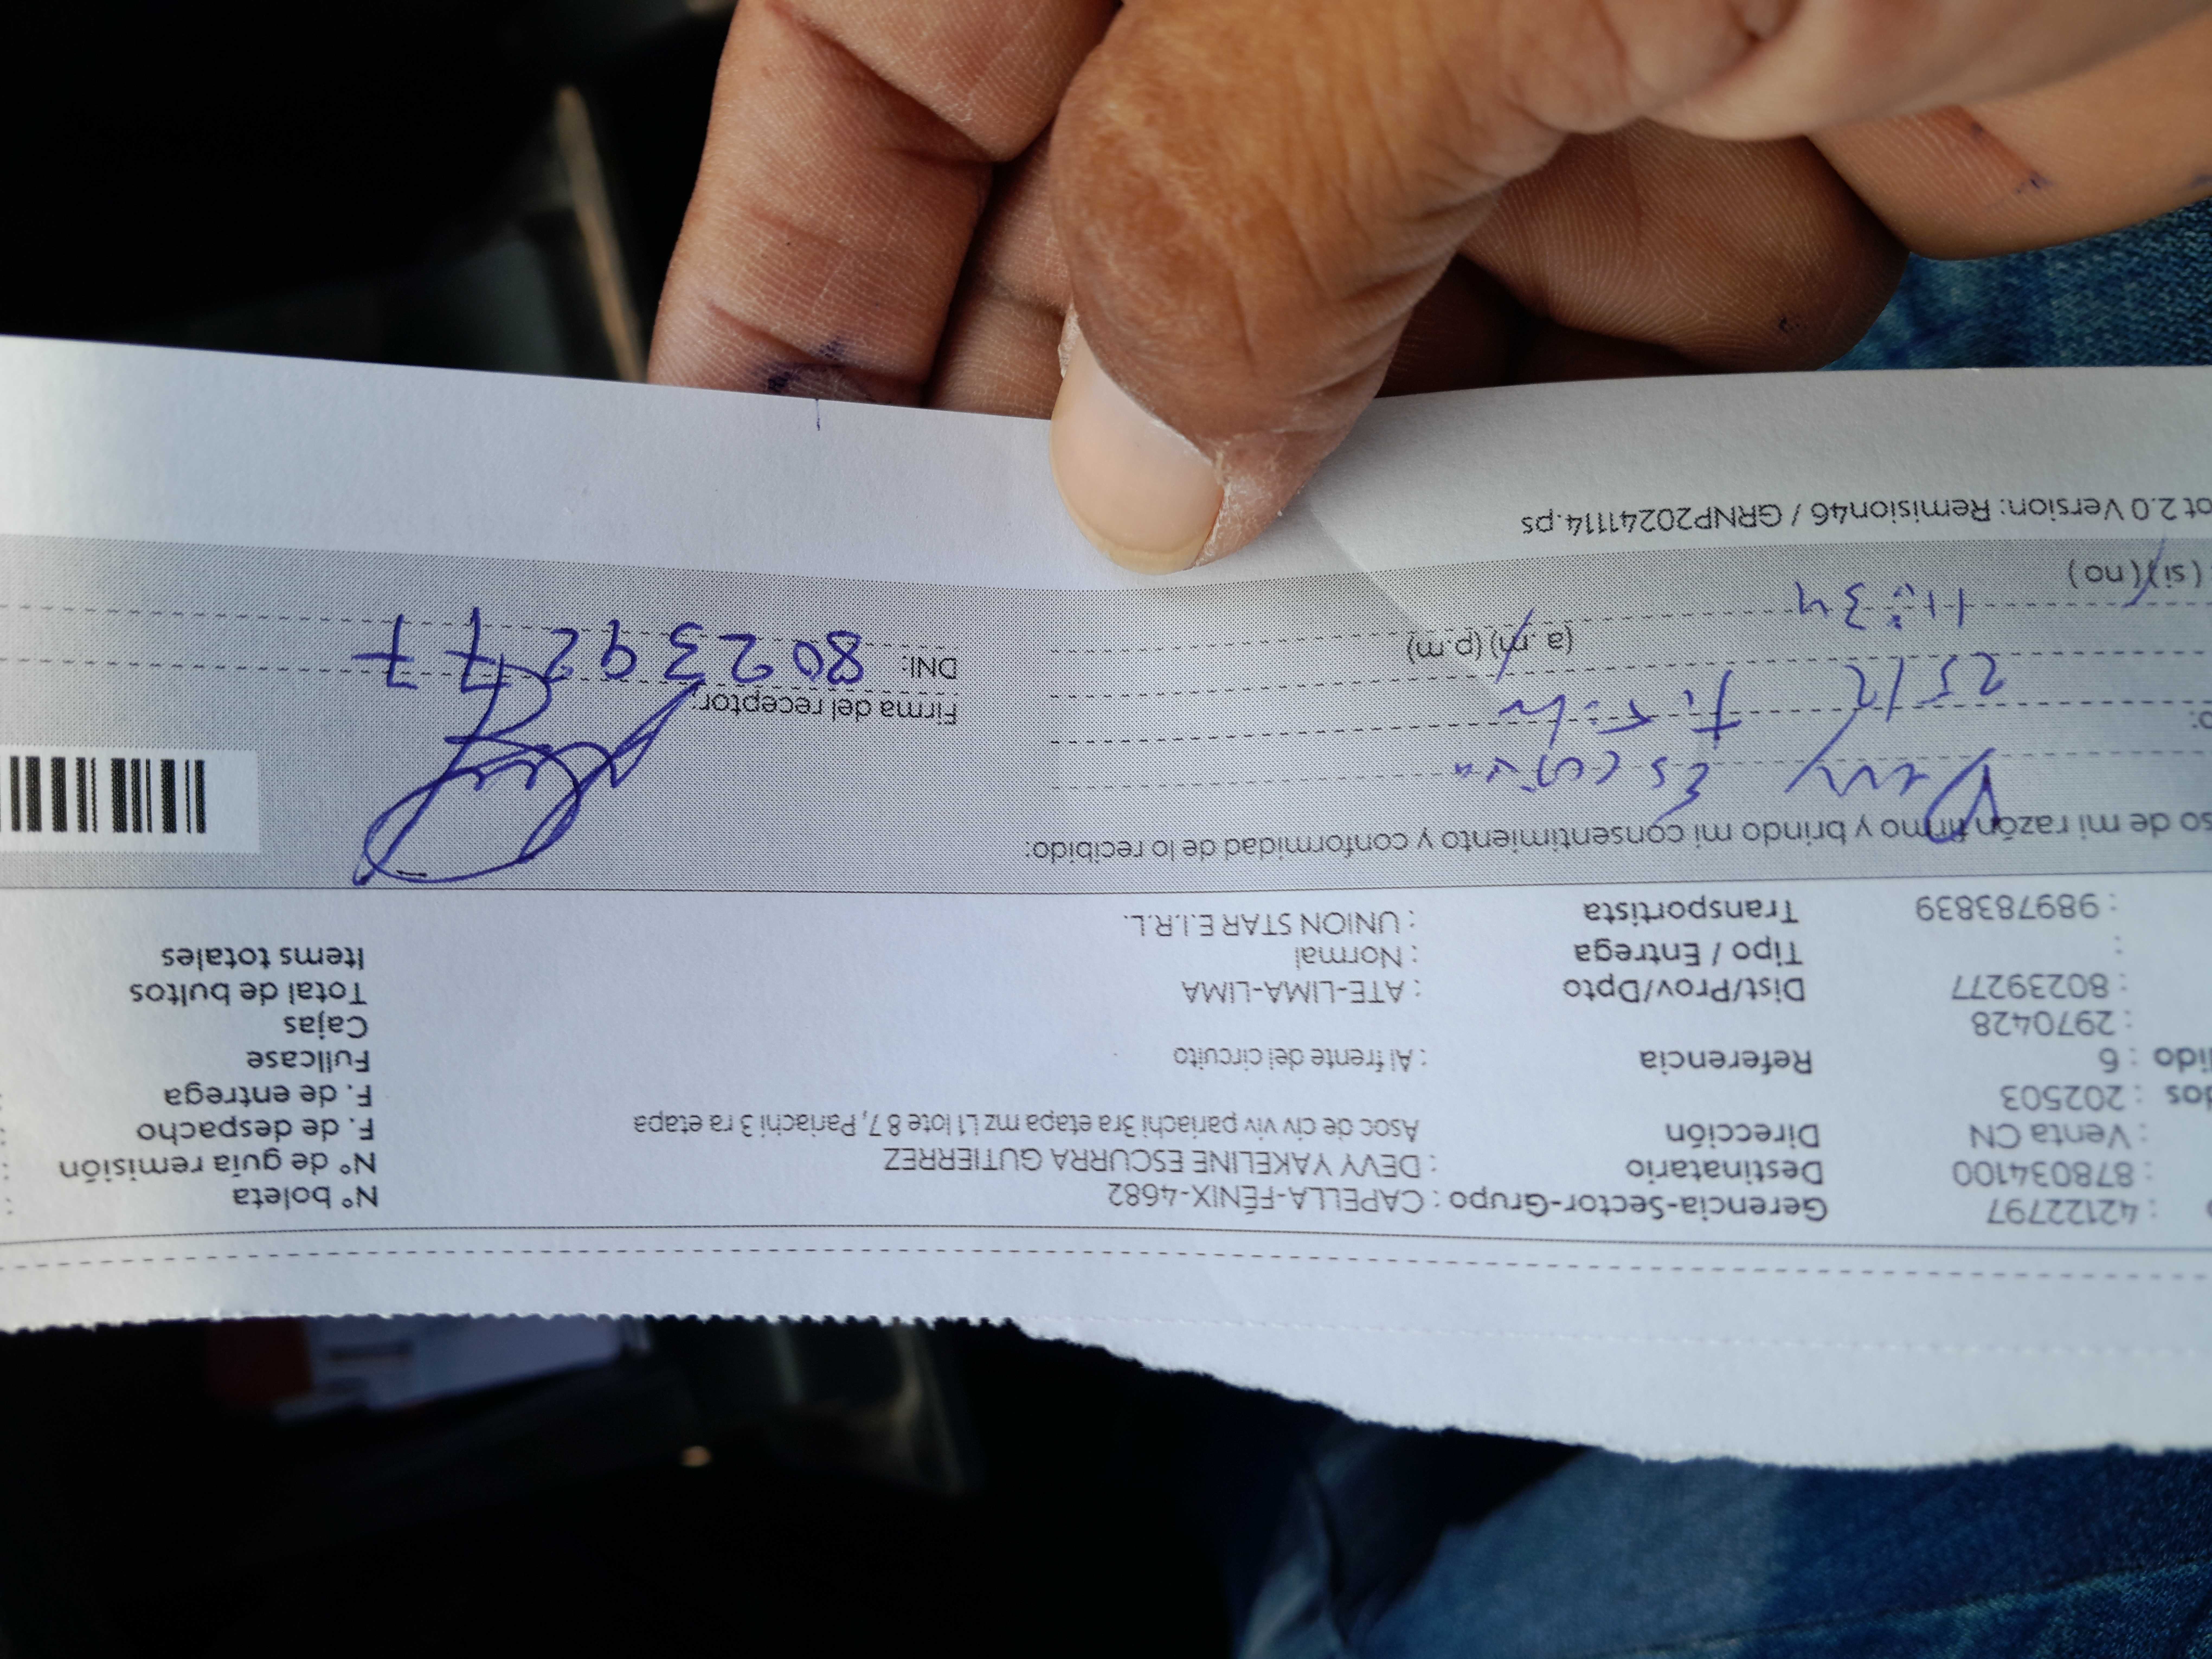 : 42122797 Gerencia-Sector-Grupo : CAPELLA-FÉNIX-4682 N° boleta
: 878034100 Destinatario : DEVY YAKELINE ESCURRA GUTIERREZ N° de guía remisión
: Venta CN Dirección Asoc de civ viv pariachi 3ra etapa mz L1 lote 8 7, Pariachi 3 ra etapa F. de despacho
dos : 202503 F. de entrega
dido : 6 Referencia : Al frente del circuito Fullcase
: 2970428 Cajas
: 80239277 Dist/Prov/Dpto : ATE-LIMA-LIMA Total de bultos
: Tipo / Entrega : Normal Items totales
: 989783839 Transportista : UNION STAR E.I.R.L.
so de mi razón firmo y brindo mi consentimiento y conformidad de lo recibido:
Escurra
Firma del receptor:
25/2
DNI: 80239277
11:34 (a.m) (p.m)
(si) (no)
ot 2.0 Version: Remision46 / GRNP20241114.ps